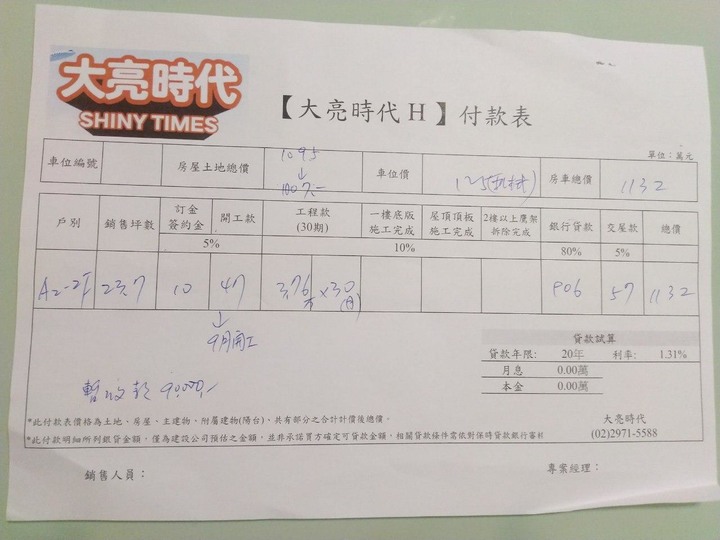 大亮時代
SHINY TIMES
【大亮時代H】付款表
單位：萬元
車位編號 房屋土地總價 1095 ↓ 1007.- 車位價 125(機械) 房車總價 1132
戶別 銷售坪數 訂金簽約金 開工款 工程款(30期) 一樓底版施工完成 屋頂頂板施工完成 2樓以上鷹架拆除完成 銀行貸款 交屋款 總價
5% 10% 80% 5%
A2-2F 23.7 10 47 3.76萬 ×30(月) 906 57 1132
↓
9月開工
貸款試算
貸款年限: 20年 利率: 1.31%
月息 0.00萬
本金 0.00萬
暫收款 90,000.-
*此付款表價格為土地、房屋、主建物、附屬建物(陽台)、共有部分之合計計價後總價。
大亮時代
*此付款明細所列銀貸金額，僅為建設公司預估之金額，並非承諾買方確定可貸款金額，相關貸款條件需依對保時貸款銀行審核
(02)2971-5588
銷售人員：
專案經理：